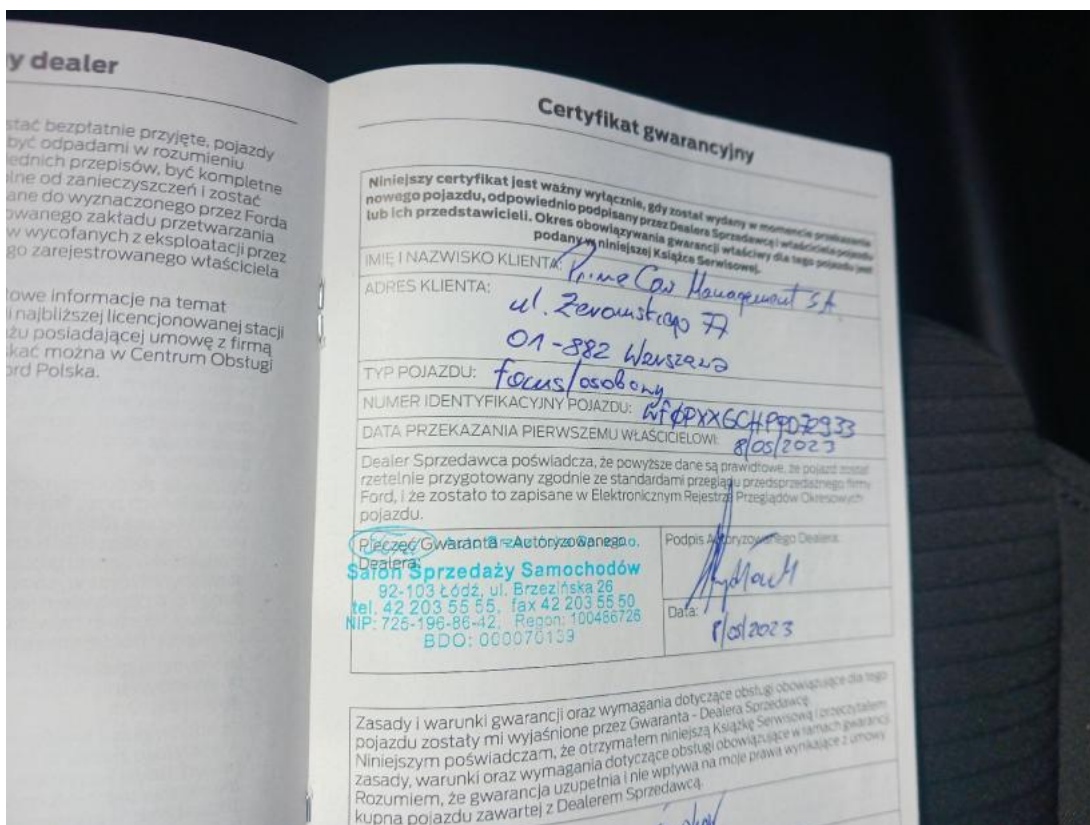 y dealer
stać bezpłatnie przyjęte, pojazdy
być odpadami w rozumieniu
iednich przepisów, być kompletne
olne od zanieczyszczeń i zostać
ane do wyznaczonego przez Forda
owanego zakładu przetwarzania
w wycofanych z eksploatacji przez
go zarejestrowanego właściciela
towe informacje na temat
i najbliższej licencjonowanej stacji
żu posiadającej umowę z firmą
skać można w Centrum Obsługi
ord Polska.
Certyfikat gwarancyjny
Niniejszy certyfikat jest ważny wyłącznie, gdy został wydany w momencie przekazania
nowego pojazdu, odpowiednio podpisany przez Dealera Sprzedawcę i właściciela pojazdu
lub ich przedstawicieli. Okres obowiązywania gwarancji właściwy dla tego pojazdu jest
podany w niniejszej Książce Serwisowej.
IMIĘ I NAZWISKO KLIENTA: Prime Car Management S.A.
ADRES KLIENTA:
ul. Żeromskiego 77
01-882 Warszawa
TYP POJAZDU: focus/osobowy
NUMER IDENTYFIKACYJNY POJAZDU: WF0PXXGCHPPD72933
DATA PRZEKAZANIA PIERWSZEMU WŁAŚCICIELOWI: 8/05/2023
Dealer Sprzedawca poświadcza, że powyższe dane są prawidłowe, że pojazd został
rzetelnie przygotowany zgodnie ze standardami przeglądu przedsprzedażnego firmy
Ford, i że zostało to zapisane w Elektronicznym Rejestrze Przeglądów Okresowych
pojazdu.
Pieczęć Gwaranta - Autoryzowanego
Dealera:
Salon Sprzedaży Samochodów
92-103 Łódź, ul. Brzezińska 26
tel. 42 203 55 55, fax 42 203 55 50
NIP: 725-196-86-42; Regon: 100486726
BDO: 000070139
Podpis Autoryzowanego Dealera:
Data:
8/05/2023
Zasady i warunki gwarancji oraz wymagania dotyczące obsługi obowiązujące dla tego
pojazdu zostały mi wyjaśnione przez Gwaranta - Dealera Sprzedawcę.
Niniejszym poświadczam, że otrzymałem niniejszą Książkę Serwisową i przeczytałem
zasady, warunki oraz wymagania dotyczące obsługi obowiązujące w ramach gwarancji.
Rozumiem, że gwarancja uzupełnia i nie wpływa na moje prawa wynikające z umowy
kupna pojazdu zawartej z Dealerem Sprzedawcą.